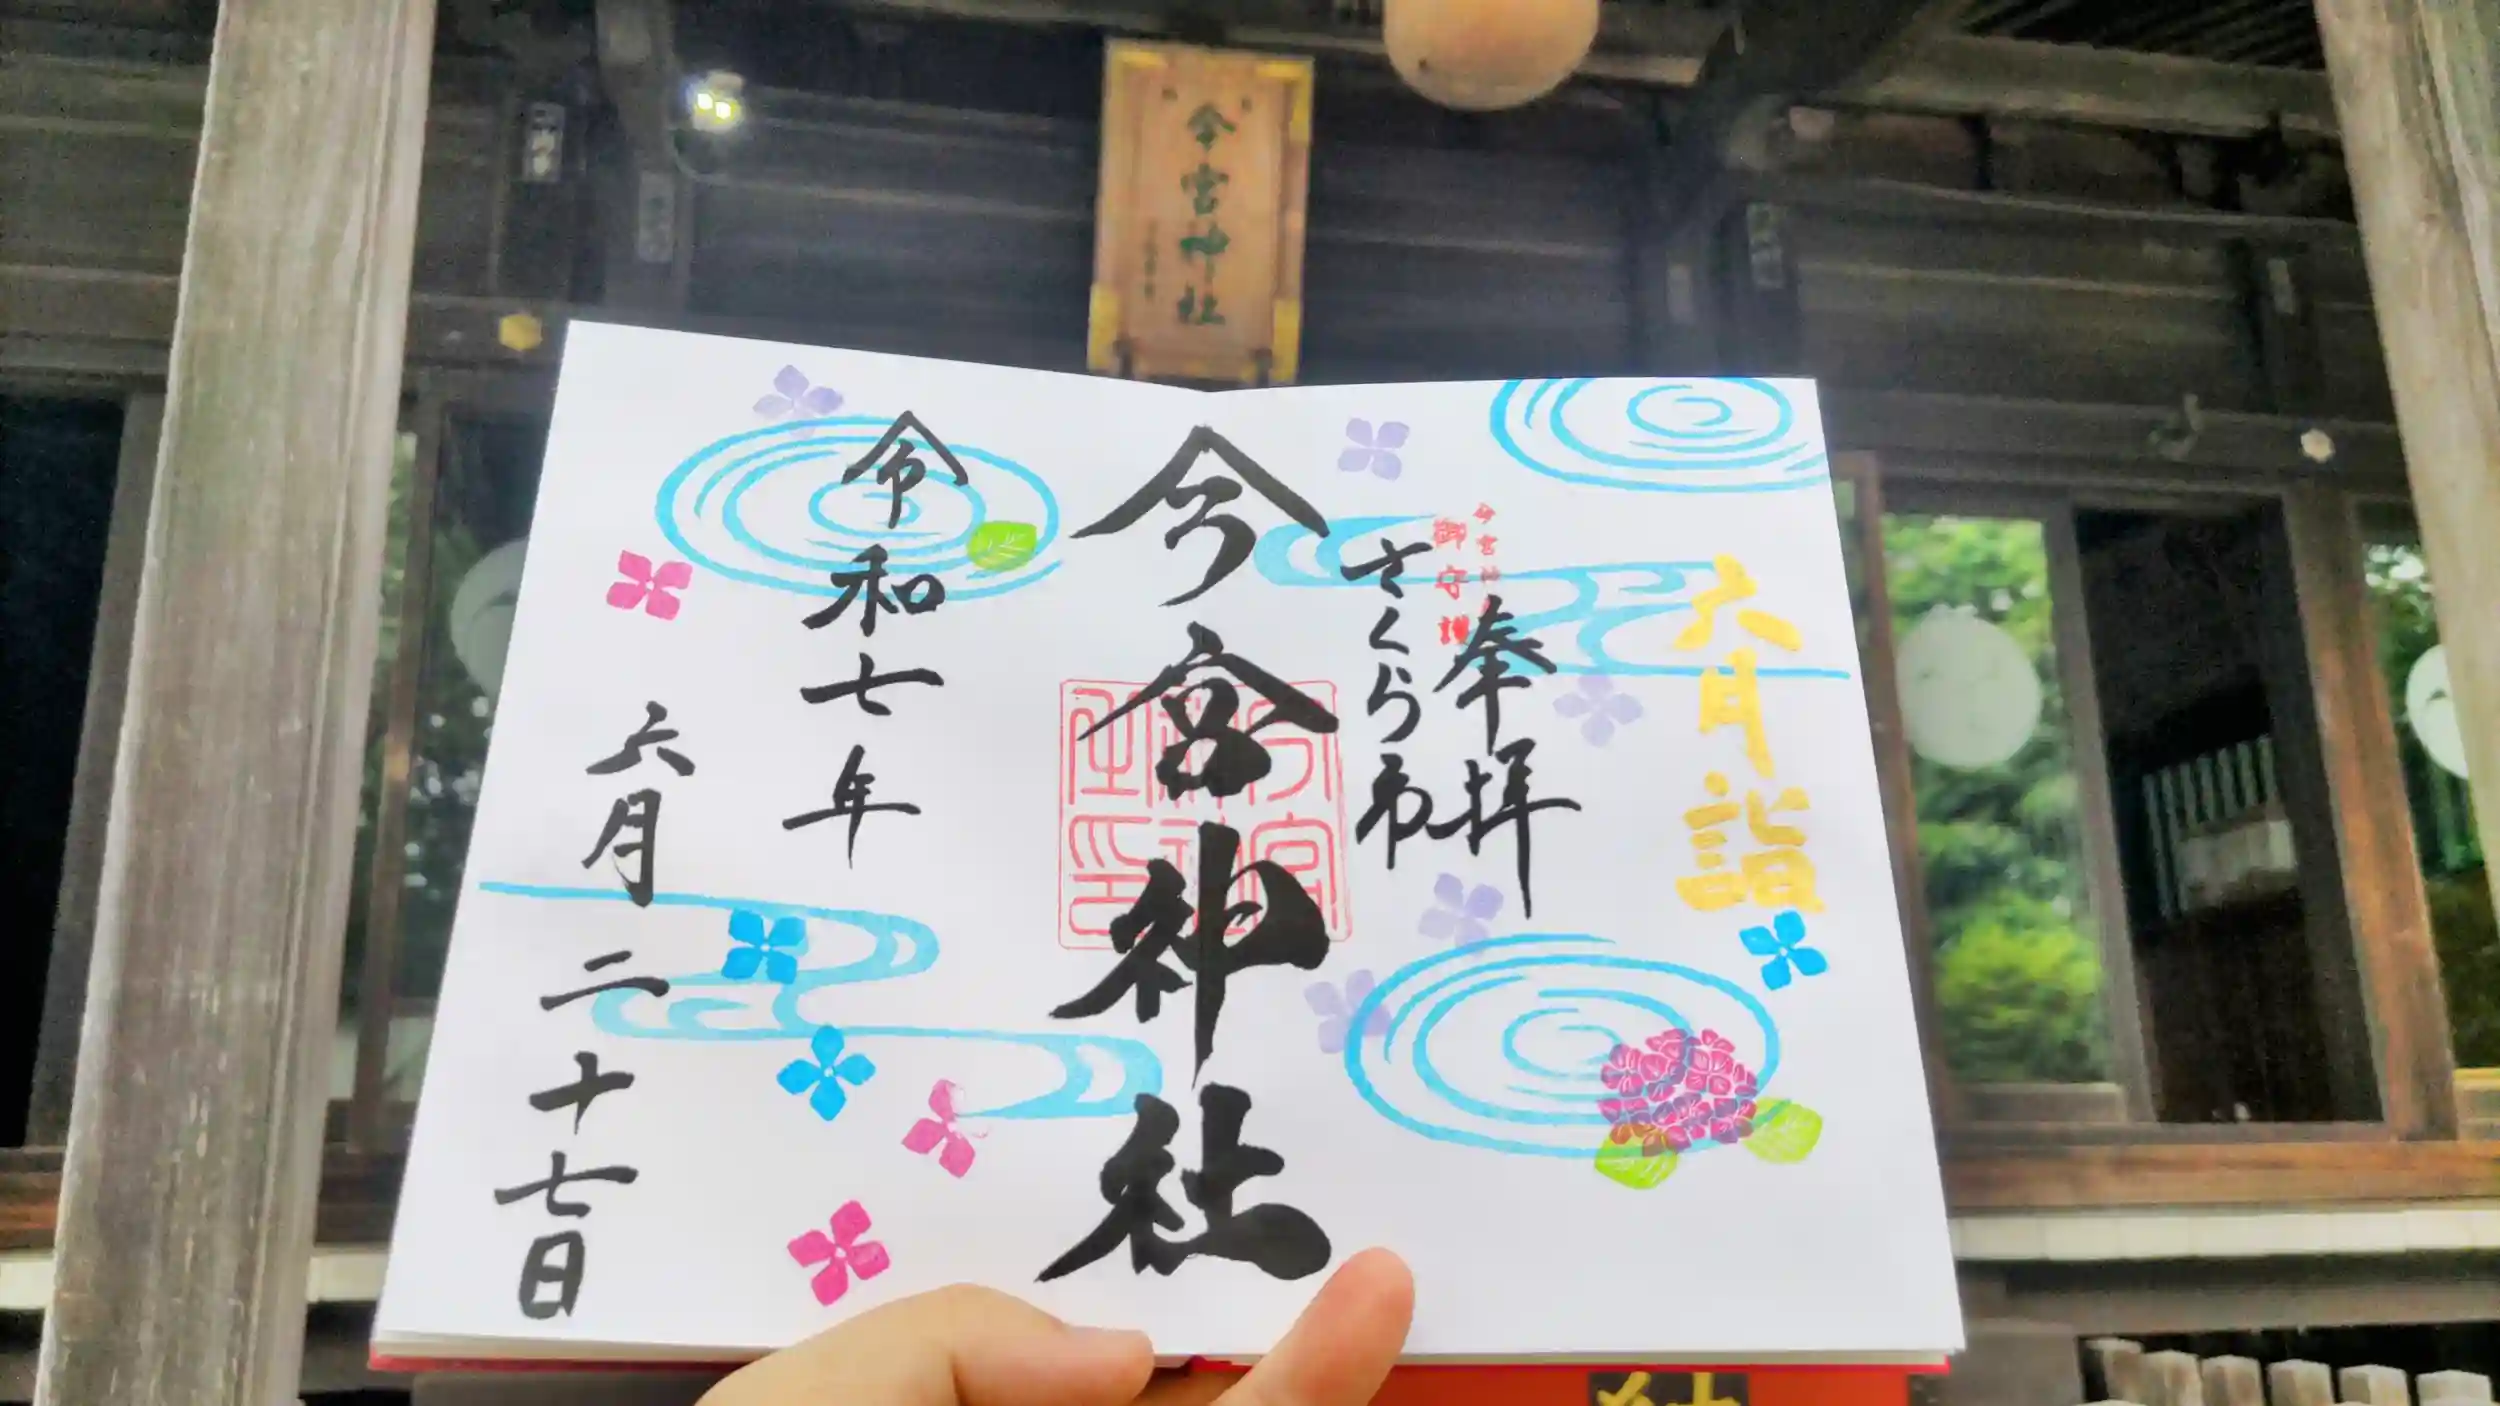 今宮神社
六月詣
奉拝
今宮神社
御守護
さくら市
今宮神社
令和七年
六月二十七日